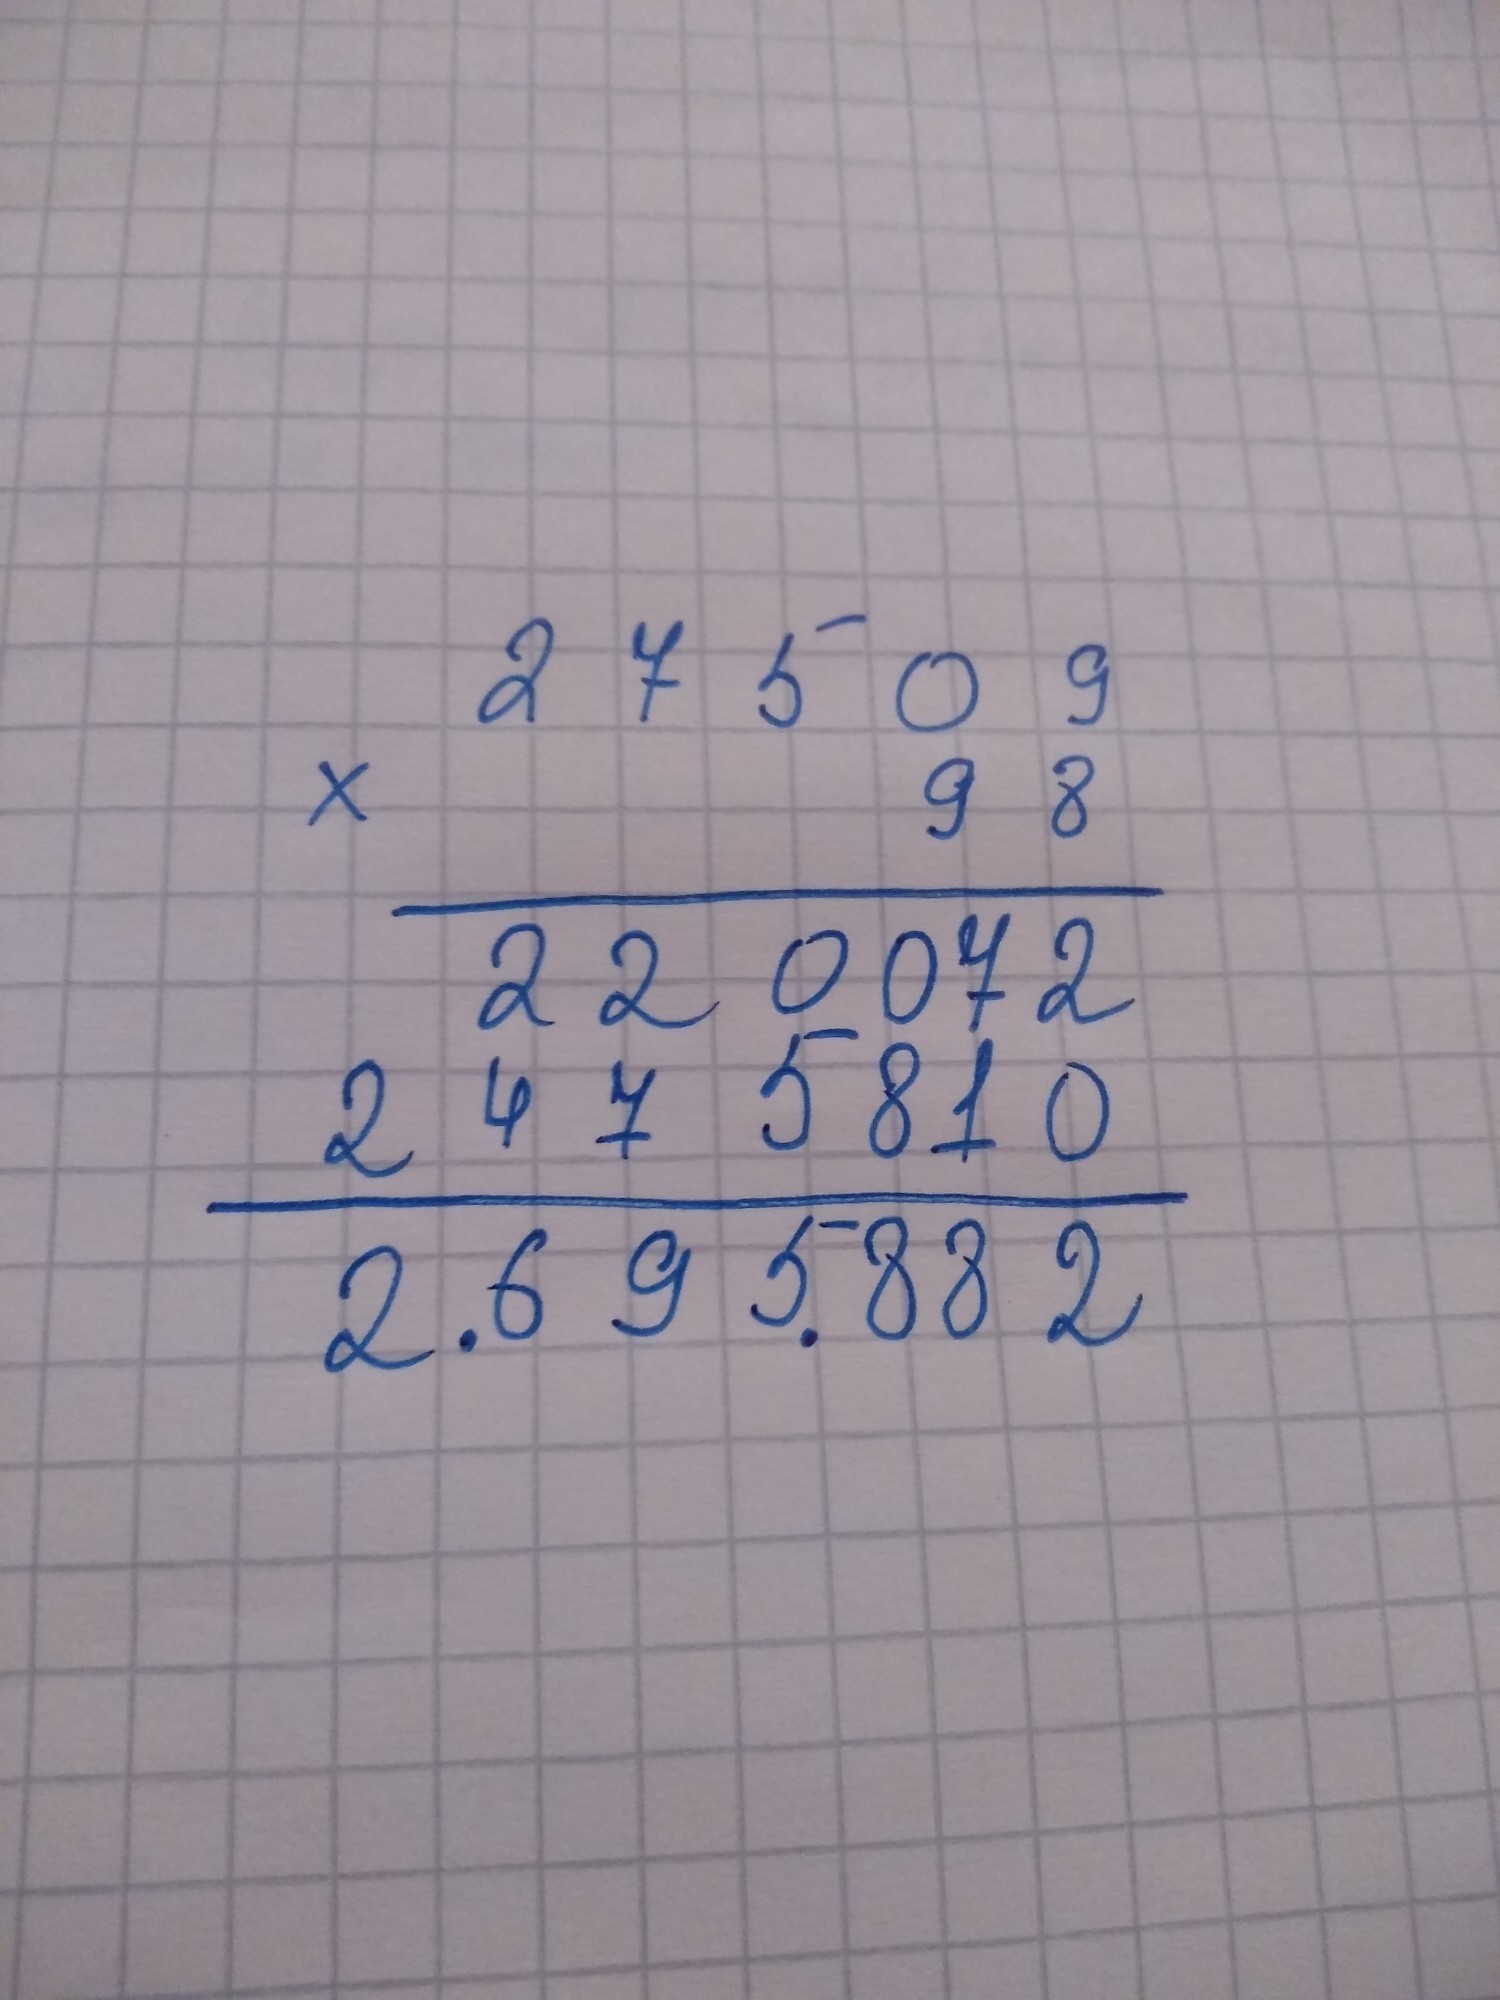 27509
x 98
220072
2475810
2.695.882